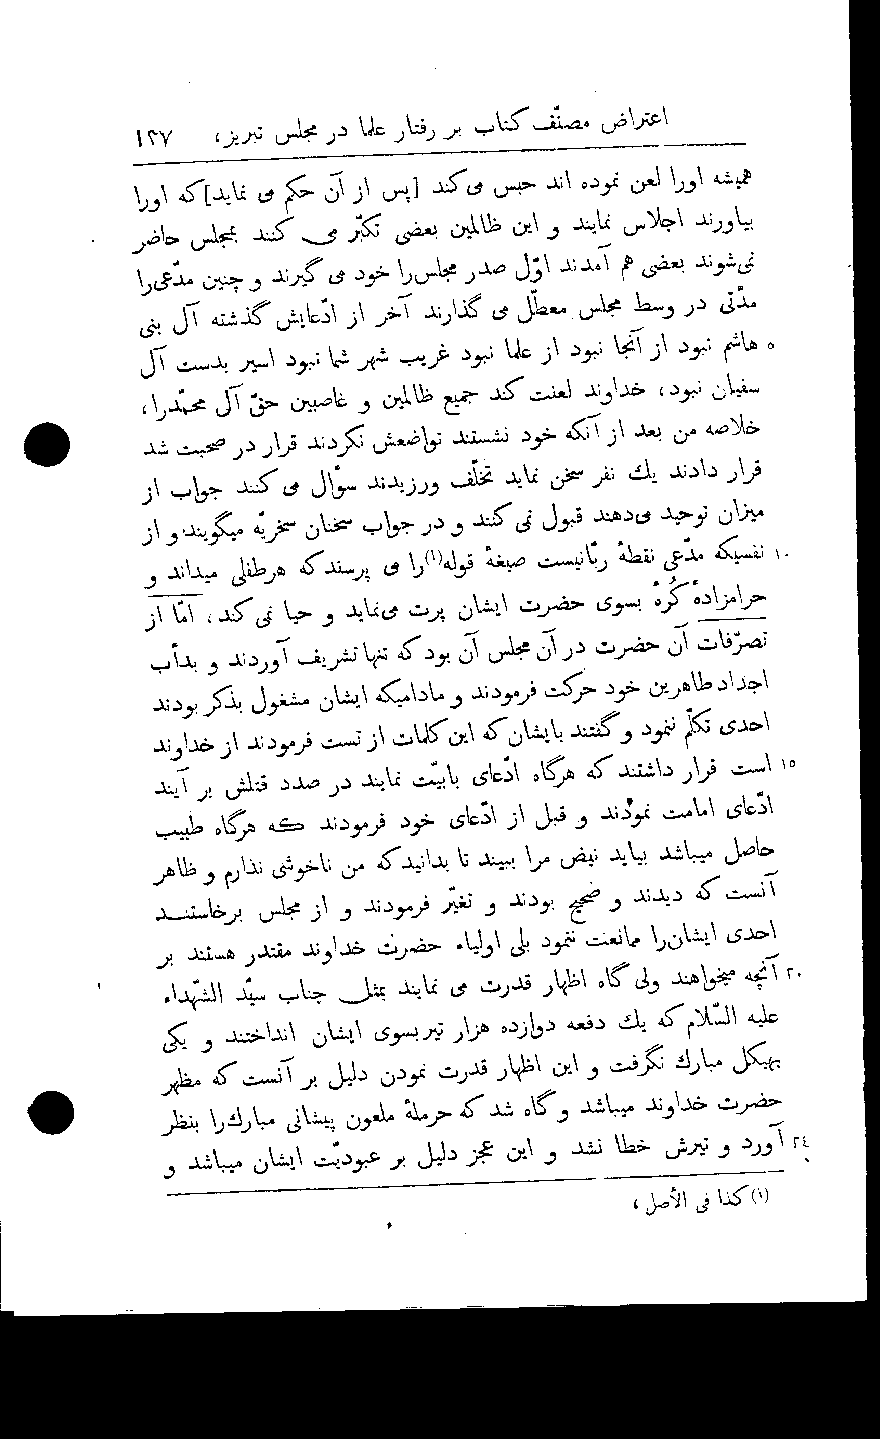 اعتراض مصنّف کتاب بر رفتار علما در مجلس تبریز، ۱۳۷
همیشه اورا لعن نموده اند حبس می‌کند [پس از آن حکم می نماید] که اورا
بیاورند اجلاس نمایند و این ظالمین بعضی تکبّر می کنند بمجلس حاضر
نمی‌شوند بعضی هم آمدند اوّل صدر مجلس‌را خود می گیرند و چنین مدّعی‌را
مدّتی در وسط مجلس معطّل می گذارند آخر از ادّعایش گذشته آل بنی
۵ هاشم نبود از آنجا نبود از علما نبود غریب شهر شما نبود اسیر بدست آل
سفیان نبود، خداوند لعنت کند جمیع ظالمین و غاصبین حقّ آل محمّدرا،
خلاصه من بعد از آنکه خود نشستند تواضعش نکردند قرار در صحبت شد
قرار دادند یك نفر سخن نماید تخلّف ورزیدند سؤال می کنند جواب از
میزان توحید می‌دهند قبول نمی کنند و در جواب سخنان سخریّه میگویند و از
۱۰ نفسیکه مدّعی نقطهٔ ربّانیست صیغهٔ قوله(۱) را می پرسند که هرطفلی میداند و
حرامزادهٔ کُرهٔ بسوی حضرت ایشان پرت می‌نماید و حیا نمی کند، امّا از
تصرّفات آن حضرت در آن مجلس آن بود که تنها تشریف آوردند و بدأب
اجداد طاهرین خود حرکت فرمودند و مادامیکه ایشان مشغول بذکر بودند
احدی تکلّم ننمود و گفتند بایشان که این کلمات از تست فرمودند از خداوند
۱۵ است قرار داشتند که هرگاه ادّعای بابیّت نمایند در صدد قتلش بر آیند
ادّعای امامت نمودند و قبل از ادّعای خود فرمودند که هرگاه طبیب
حاصل میباشد بیاید نبض مرا ببیند تا بدانید که من ناخوشی ندارم و ظاهر
آنست که دیدند و صحیح بودند و تغیّر فرمودند و از مجلس برخاستند
احدی ایشان‌را ممانعت ننمود بلی اولیاء حضرت خداوند مقتدر هستند بر
۲۰ آنچه میخواهند ولی گاه اظهار قدرت می نمایند بمثل جناب سیّد الشّهداء
علیه السّلام که یك دفعه دوازده هزار تیر بسوی ایشان انداختند و یکی
بهیکل مبارك نگرفت و این اظهار قدرت نمودن دلیل بر آنست که مظهر
حضرت خداوند میباشد و گاه شد که حرملهٔ ملعون پیشانی مبارك‌را بنظر
۲٤ آورد و تیرش خطا نشد و این عجز دلیل بر عبودیّت ایشان میباشد و
(۱) کذا فی الأصل،